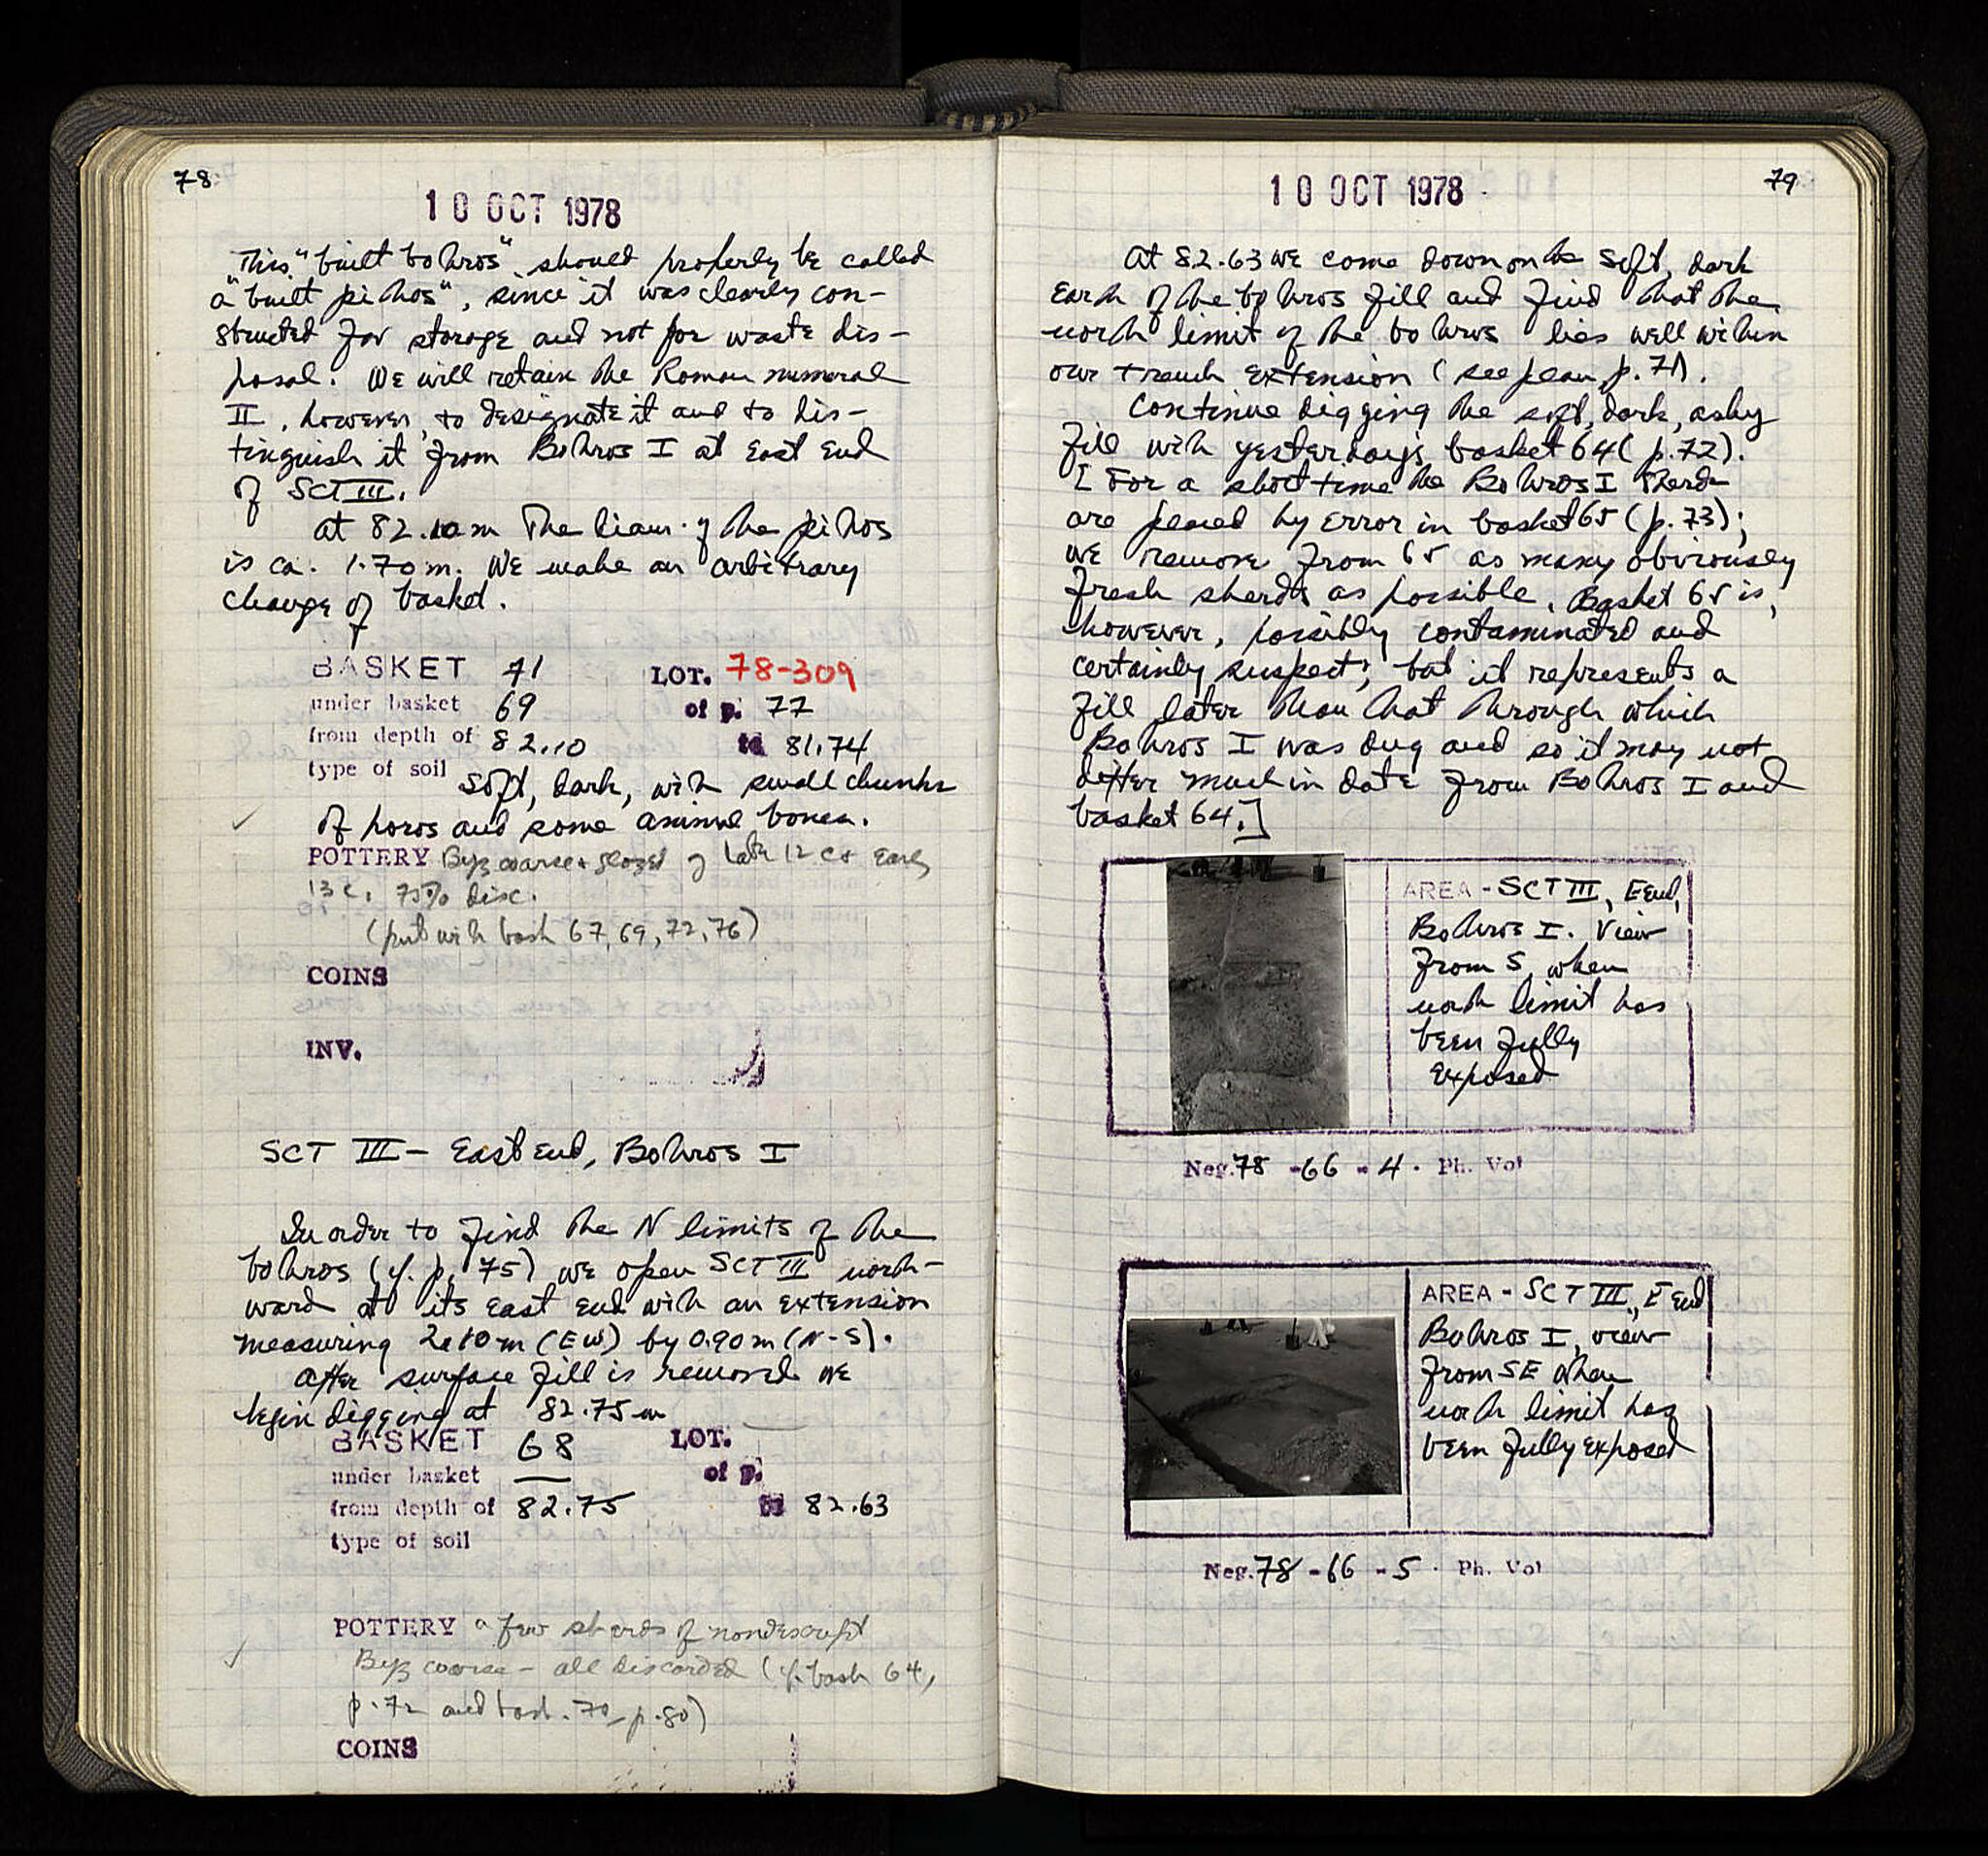 78
10 OCT 1978
This "built bothros" should properly be called
a "built pithos", since it was clearly con-
structed for storage and not for waste dis-
posal. We will retain the Roman numeral
II, however, to designate it and to dis-
tinguish it from Bothros I at East End
of SCT III.
at 82.10 m the diam. of the pithos
is ca. 1.70 m. We make an arbitrary
change of basket.
BASKET 71 LOT. 78-309
under basket 69 of p. 77
from depth of 82.10 to 81.74
type of soil soft, dark, with small chunks
of poros and some animal bones.
POTTERY Byz coarse + glazed of late 12 c + early
13 c. 75% disc.
(put with bask 67, 69, 72, 76)
COINS
INV.
SCT III - East End, Bothros I
In order to find the N limits of the
bothros (cf. p. 75) we open SCT III north-
ward at its east end with an extension
measuring 2.10 m (EW) by 0.90 m (N-S).
After surface fill is removed we
begin digging at 82.75 m
BASKET 68 LOT.
under basket — of p.
from depth of 82.75 to 82.63
type of soil
POTTERY a few sherds of nondescript
Byz coarse - all discarded (cf. bask 64,
p. 72 and bask. 70, p. 80)
COINS
79
10 OCT 1978
At 82.63 we come down on the soft, dark
earth of the bothros fill and find that the
north limit of the bothros lies well within
our trench extension (see plan, p. 71).
Continue digging the soft, dark, ashy
fill with yesterday's basket 64 (p. 72).
[For a short time the Bothros I sherds
are placed by error in basket 65 (p. 73);
we remove from 65 as many obviously
fresh sherds as possible. Basket 65 is,
however, possibly contaminated and
certainly suspect; but it represents a
fill later than that through which
Bothros I was dug and so it may not
differ much in date from Bothros I and
basket 64.]
AREA - SCT III, E End,
Bothros I. View
from S, when
north limit has
been fully
exposed
Neg. 78 - 66 - 4. Ph. Vol
AREA - SCT III, E End
Bothros I, view
from SE when
north limit has
been fully exposed
Neg. 78 - 66 - 5. Ph. Vol